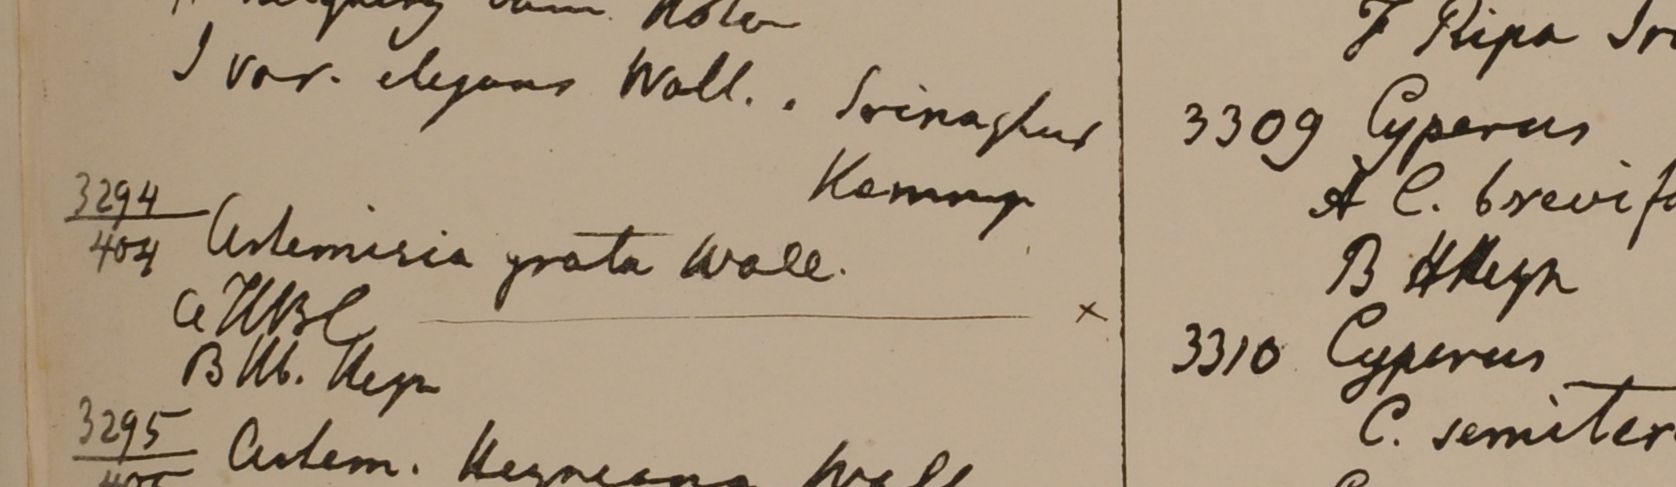 I var. elegans Wall. . Srinaghur
Kamaup
3294
404 Artemisia grata Wall.
a HBC ×
B Hb. Heyn
3295
405 Artem. Heyneana Wall
F Ripa
3309 Cyperus
A C. brevifo
B HHeyn
3310 Cyperus
C. semiter